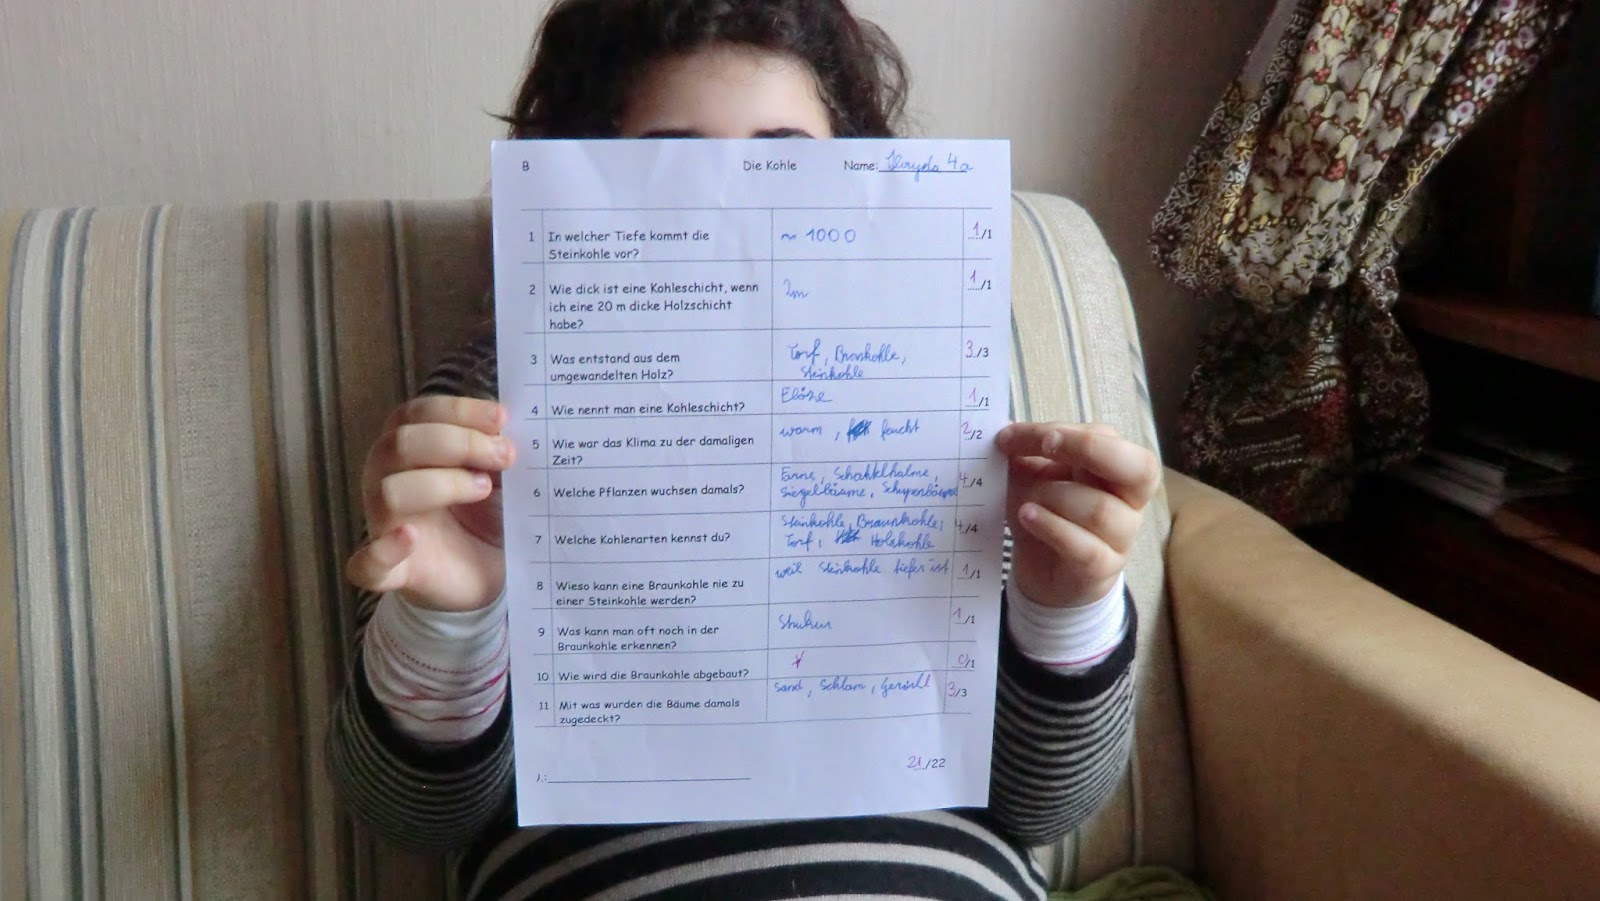 B Die Kohle Name: 4a
1 In welcher Tiefe kommt die ~ 1000 1/1
Steinkohle vor?
2 Wie dick ist eine Kohleschicht, wenn 2m 1/1
ich eine 20 m dicke Holzschicht
habe?
3 Was entstand aus dem Torf, Braunkohle, 3/3
umgewandelten Holz? Steinkohle
4 Wie nennt man eine Kohleschicht? Flöze 1/1
5 Wie war das Klima zu der damaligen warm, feucht 2/2
Zeit?
6 Welche Pflanzen wuchsen damals? Farne, Schachtelhalme, 4/4
Siegelbäume, Schupenbäume
7 Welche Kohlenarten kennst du? Steinkohle, Braunkohle, 4/4
Torf, Holzkohle
8 Wieso kann eine Braunkohle nie zu weil Steinkohle tiefer ist 1/1
einer Steinkohle werden?
9 Was kann man oft noch in der 1/1
Braunkohle erkennen?
10 Wie wird die Braunkohle abgebaut? 0/1
11 Mit was wurden die Bäume damals Sand, Schlam, Geröll 3/3
zugedeckt?
21/22